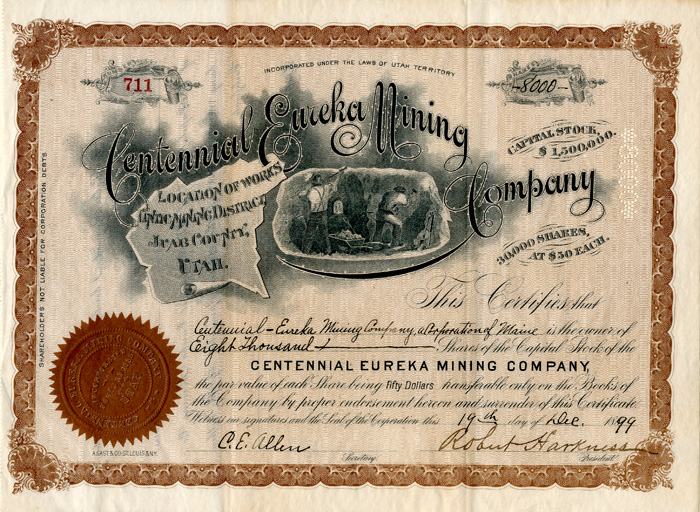 INCORPORATED UNDER THE LAWS OF UTAH TERRITORY
711
-8000-
Centennial Eureka Mining Company
CAPITAL STOCK,
$1,500,000.
LOCATION OF WORKS
TINTIC MINING DISTRICT
JUAB COUNTY,
UTAH.
30,000 SHARES,
AT $50 EACH.
SHAREHOLDERS NOT LIABLE FOR CORPORATION DEBTS
This Certifies that
Centennial-Eureka Mining Company, a Corporation of Maine is the owner of
Eight Thousand Shares of the Capital Stock of the
CENTENNIAL EUREKA MINING COMPANY,
the par value of each Share being Fifty Dollars transferable only on the Books of
the Company by proper endorsement hereon and surrender of this Certificate
Witness our signatures and the Seal of the Corporation this 19th day of Dec. 1899
C.E. Allen Robert Harkness
Secretary. President.
A. GAST & CO. ST. LOUIS & N.Y.